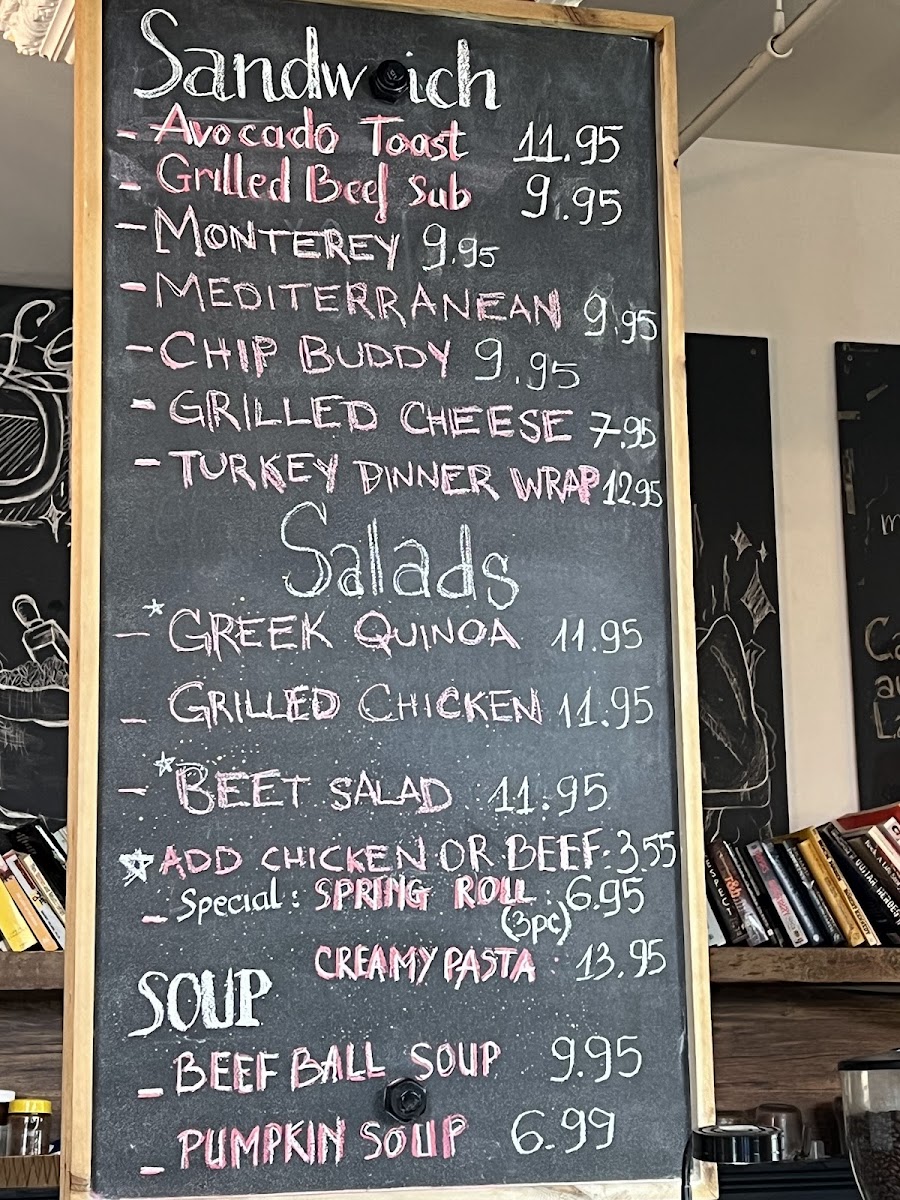 Sandwich
- Avocado Toast 11.95
- Grilled Beef Sub 9.95
- MONTEREY 9.95
- MEDITERRANEAN 9.95
- CHIP BUDDY 9.95
- GRILLED CHEESE 7.95
- TURKEY DINNER WRAP 12.95
Salads
- *GREEK QUINOA 11.95
- GRILLED CHICKEN 11.95
- *BEET SALAD 11.95
☆ADD CHICKEN OR BEEF: 3.55
- Special: SPRING ROLL: 6.95
(3pc)
CREAMY PASTA: 13.95
SOUP
- BEEF BALL SOUP 9.95
- PUMPKIN SOUP 6.99